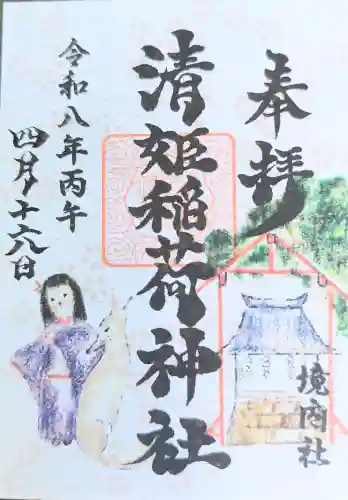 奉拝
清姫稲荷神社
境内社
令和八年丙午
四月十六日